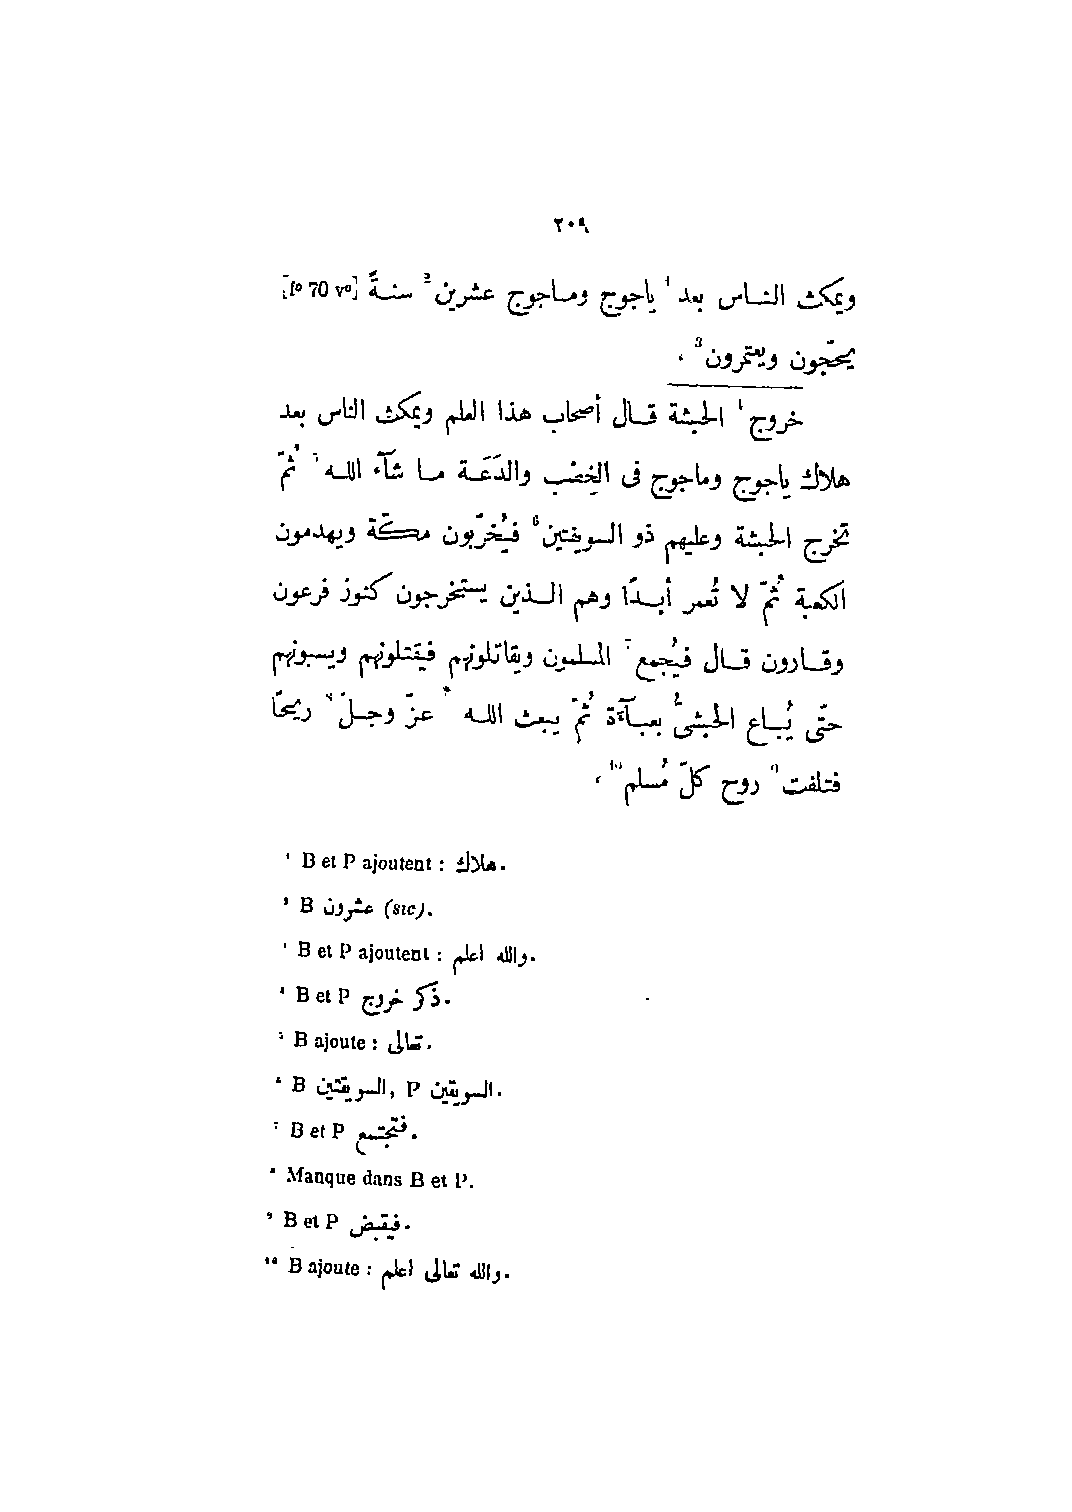 ٢٠٩
ويمكث النـاس بعد ¹ ياجوج ومـاجوج عشرين ² سنـةً [f° 70 v°]
يحجّون ويعتمرون ³ ،
خروج ¹ الحبشة قـال أصحاب هذا العلم ويمكث الناس بعد
هلاك ياجوج وماجوج فى الخِصْب والدَعَـة مـا شآء اللـه ⁵ ثُمّ
تخرج الحبشة وعليهم ذو السويقتين ⁶ فيُخرّبون مكّة ويهدمون
الكعبة ثُمّ لا تُعمر أبـدًا وهم الـذين يستخرجون كنوز فرعون
وقـارون قـال فيُجمع ⁷ المسلمون ويقاتلونهم فيقتلونهم ويسبونهم
حتّى يُبـاع الحبشىُّ بعبـآءة ثُمّ يبعث اللـه ⁸ عزّ وجـلّ ⁸ ريحًا
فتلفت ⁹ روح كلّ مُسلم ¹⁰ ،
¹ B et P ajoutent : هلاك.
² B عشرون (sic).
³ B et P ajoutent : والله اعلم.
⁴ B et P ذكر خروج.
⁵ B ajoute : تعالى.
⁶ B السويقتين, P السويقين.
⁷ B et P فتجتمع.
⁸ Manque dans B et P.
⁹ B et P فيقبض.
¹⁰ B ajoute : والله تعالى اعلم.